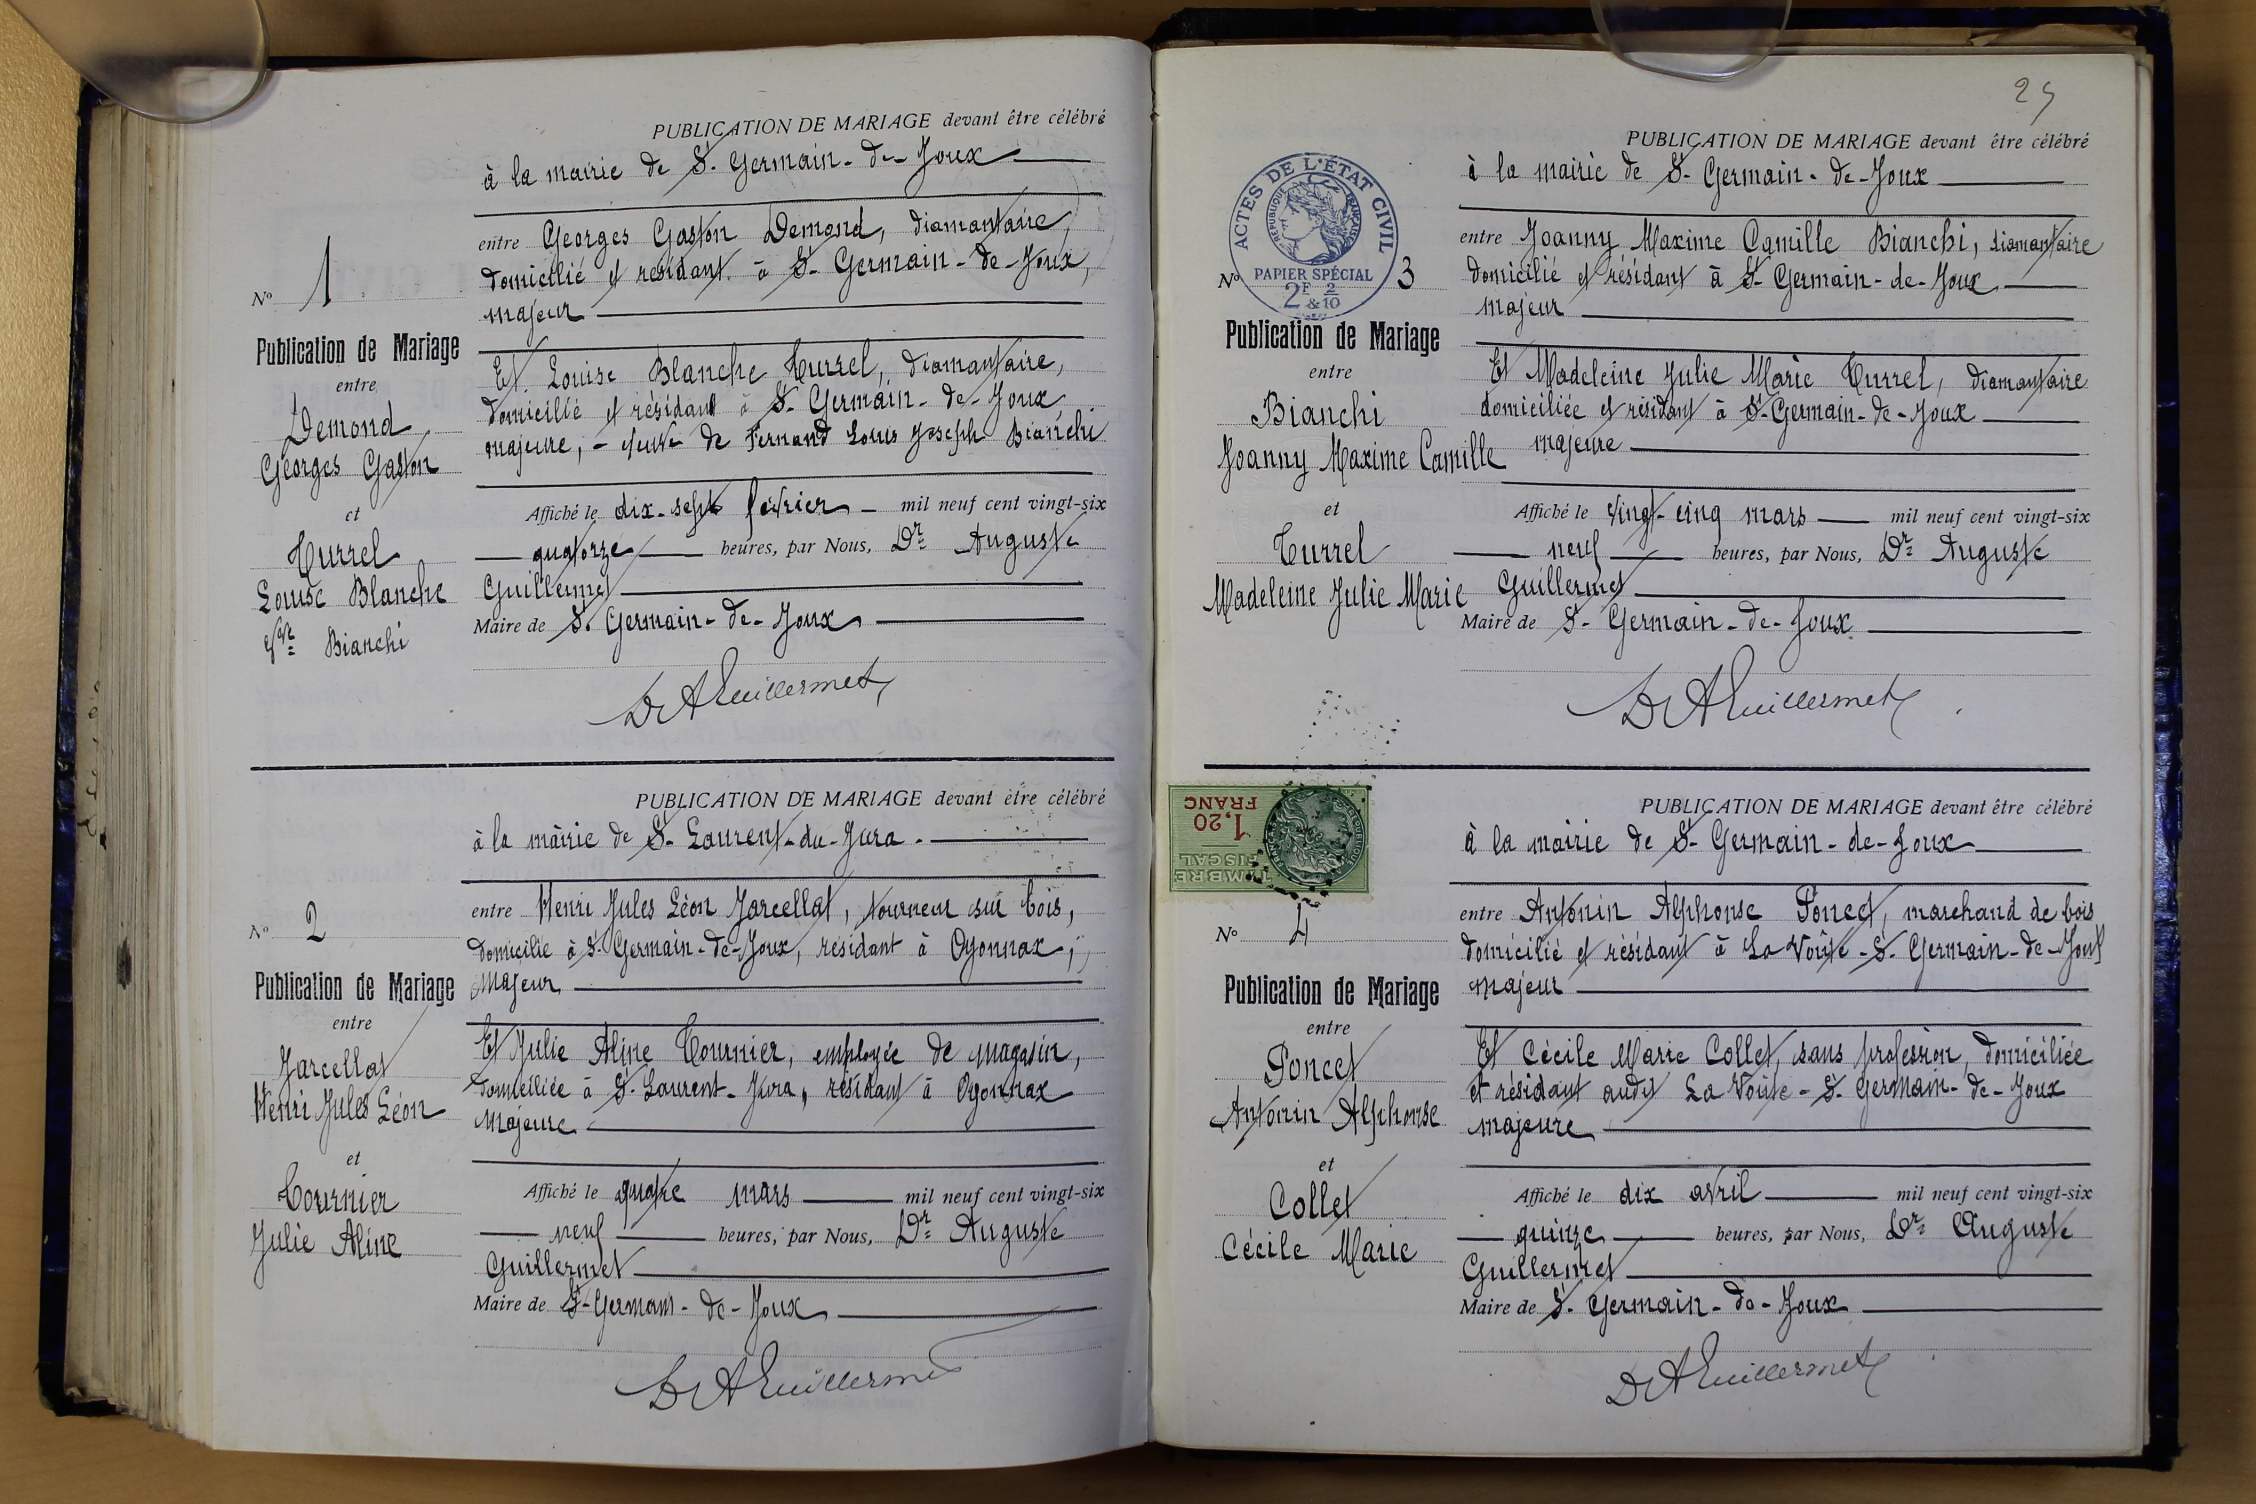 PUBLICATION DE MARIAGE devant être célébré
à la mairie de St. Germain-de-Joux
entre Georges Gaston Demond, diamantaire,
domicilié et résidant à St-Germain-de-Joux,
majeur
Et Louise Blanche Turrel, diamantaire,
domiciliée et résidant à St-Germain-de-Joux
majeure, - veuve de Fernand Louis Joseph Bianchi
Affiché le dix-sept février mil neuf cent vingt-six
quatorze heures, par Nous, Dr Auguste
Guillermet
Maire de St. Germain-de-Joux
Dr A Guillermet
No 1
Publication de Mariage
entre
Demond
Georges Gaston
et
Turrel
Louise Blanche
Vve Bianchi
PUBLICATION DE MARIAGE devant être célébré
à la mairie de St-Laurent-du-Jura.
entre Henri Jules Léon Jarcellat, tourneur sur bois,
domicilié à St-Germain-de-Joux, résidant à Oyonnax,
majeur
Et Julie Aline Tournier, employée de magasin,
domiciliée à St-Laurent-Jura, résidant à Oyonnax
majeure
Affiché le quatre mars mil neuf cent vingt-six
neuf heures, par Nous, Dr Auguste
Guillermet
Maire de St-Germain-de-Joux
Dr A Guillermet
No 2
Publication de Mariage
entre
Jarcellat
Henri Jules Léon
et
Tournier
Julie Aline
25
PUBLICATION DE MARIAGE devant être célébré
à la mairie de St-Germain-de-Joux
entre Joanny Maxime Camille Bianchi, diamantaire
domicilié et résidant à St-Germain-de-Joux
majeur
Et Madeleine Julie Marie Turrel, diamantaire
domiciliée et résidant à St-Germain-de-Joux
majeure
Affiché le vingt-cinq mars mil neuf cent vingt-six
neuf heures, par Nous, Dr Auguste
Guillermet
Maire de St-Germain-de-Joux
Dr A Guillermet
ACTES DE L'ÉTAT CIVIL
RÉPUBLIQUE FRANÇAISE
PAPIER SPÉCIAL
2F & 2/10
No 3
Publication de Mariage
entre
Bianchi
Joanny Maxime Camille
et
Turrel
Madeleine Julie Marie
PUBLICATION DE MARIAGE devant être célébré
à la mairie de St-Germain-de-Joux
entre Antonin Alphonse Poncet, marchand de bois
domicilié et résidant à La Voûte-St-Germain-de-Joux
majeur
Et Cécile Marie Collet, sans profession, domiciliée
et résidant audit La Voûte-St-Germain-de-Joux
majeure
Affiché le dix avril mil neuf cent vingt-six
quinze heures, par Nous, Dr Auguste
Guillermet
Maire de St-Germain-de-Joux
Dr A Guillermet
TIMBRE
FISCAL
1,20
FRANC
No 4
Publication de Mariage
entre
Poncet
Antonin Alphonse
et
Collet
Cécile Marie